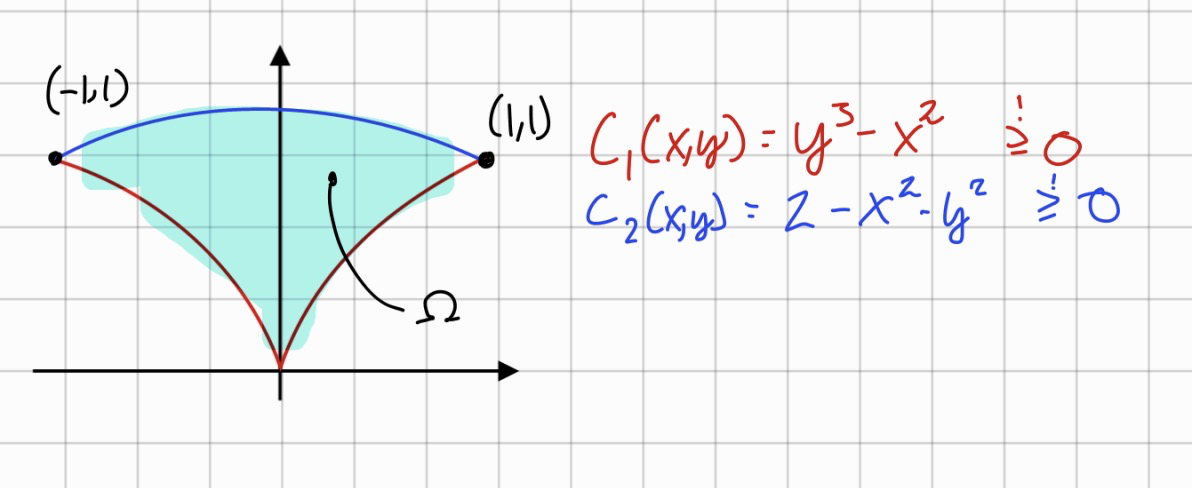 (-1,1)
(1,1)
C₁(x,y) = y³ - x² ≥! 0
C₂(x,y) = 2 - x² - y² ≥! 0
Ω